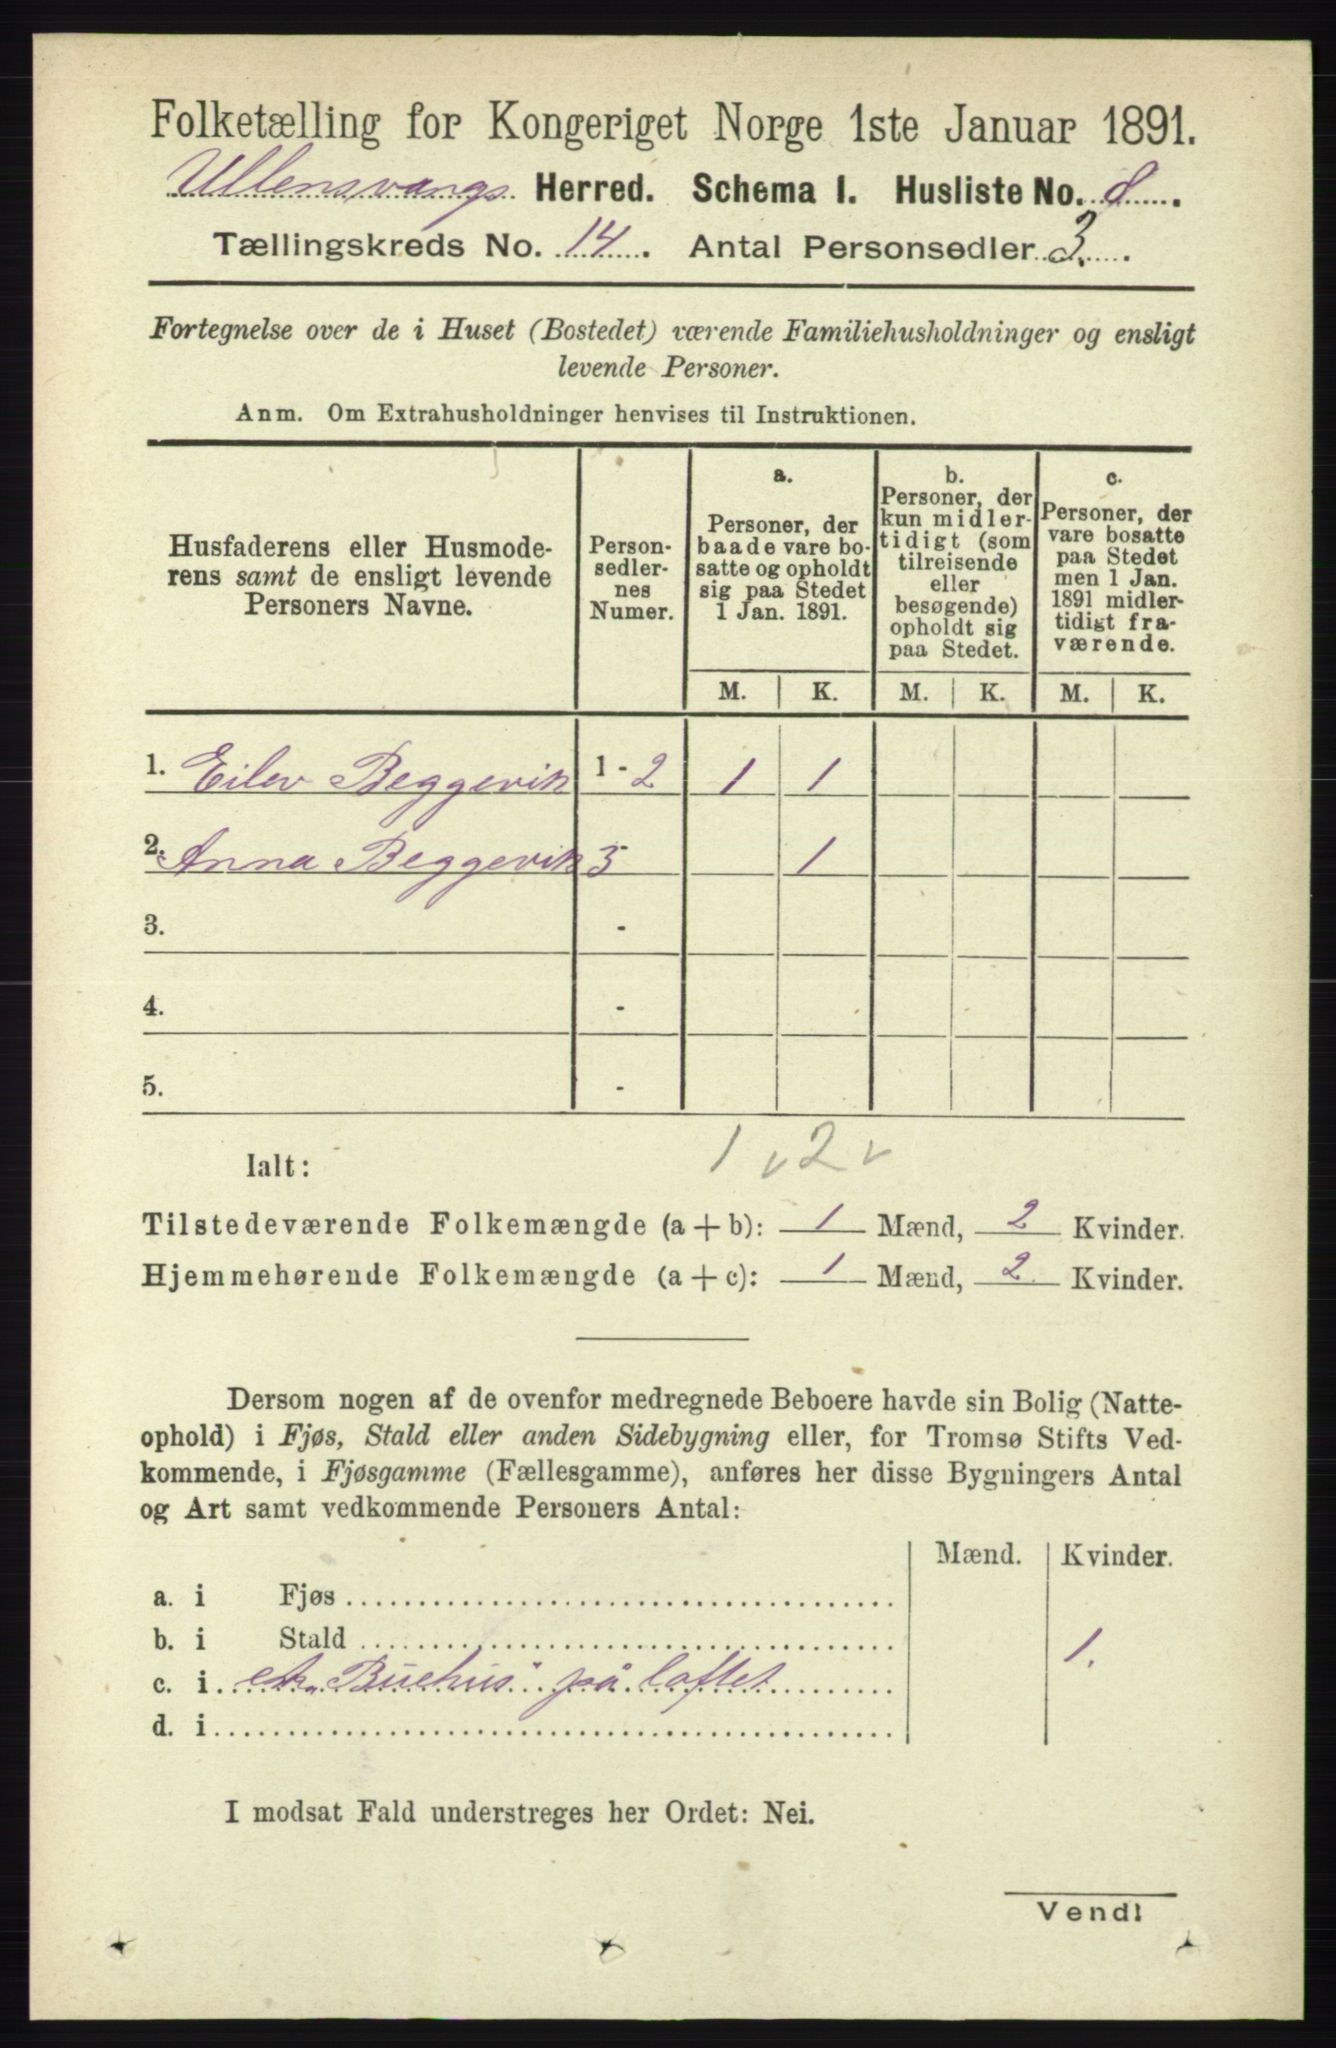 Folketælling for Kongeriget Norge 1ste Januar 1891.
Ullensvangs Herred. Schema I. Husliste No. 8.
Tællingskreds No. 14. Antal Personsedler 3.
Fortegnelse over de i Huset (Bostedet) værende Familiehusholdninger og ensligt
levende Personer.
Anm. Om Extrahusholdninger henvises til Instruktionen.
Husfaderens eller Husmode-
rens samt de ensligt levende
Personers Navne.
Person-
sedler-
nes
Numer.
a.
Personer, der
baade vare bo-
satte og opholdt
sig paa Stedet
1 Jan. 1891.
b.
Personer, der
kun midler-
tidigt (som
tilreisende
eller
besøgende)
opholdt sig
paa Stedet.
c.
Personer, der
vare bosatte
paa Stedet
men 1 Jan.
1891 midler-
tidigt fra-
værende.
M. K. M. K. M. K.
1. Eilev Beggevik 1 - 2 1 1
2. Anna Beggevik 3 1
3. -
4. -
5. -
Ialt: 1 2
Tilstedeværende Folkemængde (a + b): 1 Mænd, 2 Kvinder.
Hjemmehørende Folkemængde (a + c): 1 Mænd, 2 Kvinder.
Dersom nogen af de ovenfor medregnede Beboere havde sin Bolig (Natte-
ophold) i Fjøs, Stald eller anden Sidebygning eller, for Tromsø Stifts Ved-
kommende, i Fjøsgamme (Fællesgamme), anføres her disse Bygningers Antal
og Art samt vedkommende Personers Antal:
Mænd. Kvinder.
a. i Fjøs
b. i Stald 1.
c. i "Buehus" på loftet
d. i
I modsat Fald understreges her Ordet: Nei.
Vend!